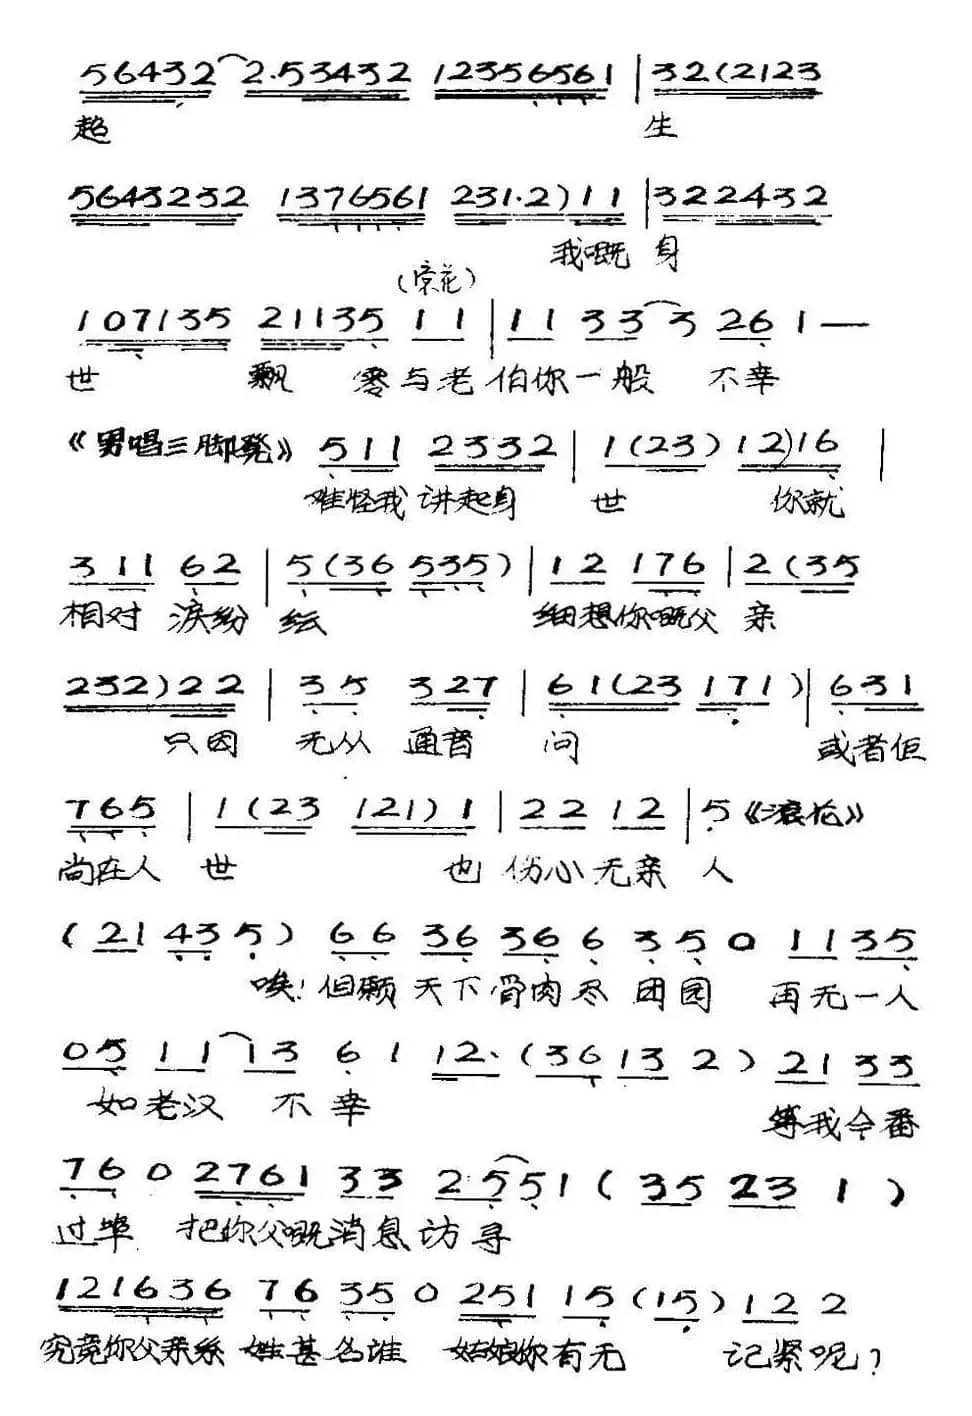 56432 2.53432 12356561 | 32(2123
趋 生
5643232 1376561 231.2)11 | 322432
我嘅 身
(常花)
107135 21135 11 | 11 33 3 26 1 —
世 飘 零与老伯你一般 不幸
《男唱三脚凳》 511 2332 | 1(23) 12)16 |
难怪我 讲起身 世 你就
3 11 62 | 5(36 535) | 12 176 | 2(35
相对 淚纷 纭 细想你嘅父 亲
232)22 | 35 327 | 61(23 171) | 631
只因 无从 通音 问 或者佢
765 | 1(23 121)1 | 22 12 | 5《滚花》
尚在人 世 也 伤心无亲 人
(21 435) 66 36 366 35 0 1135
唉！但願 天下骨肉尽 团园 再无一人
05 11 13 6 1 12.(3613 2) 21 33
如老汉 不幸 等我今番
76 0 2761 33 2.551(35 23 1)
过埠 把你父嘅消息访寻
121636 76 35 0 251 15(15) 12 2
究竟你父亲系 姓甚名谁 姑娘你有无 记紧呢？